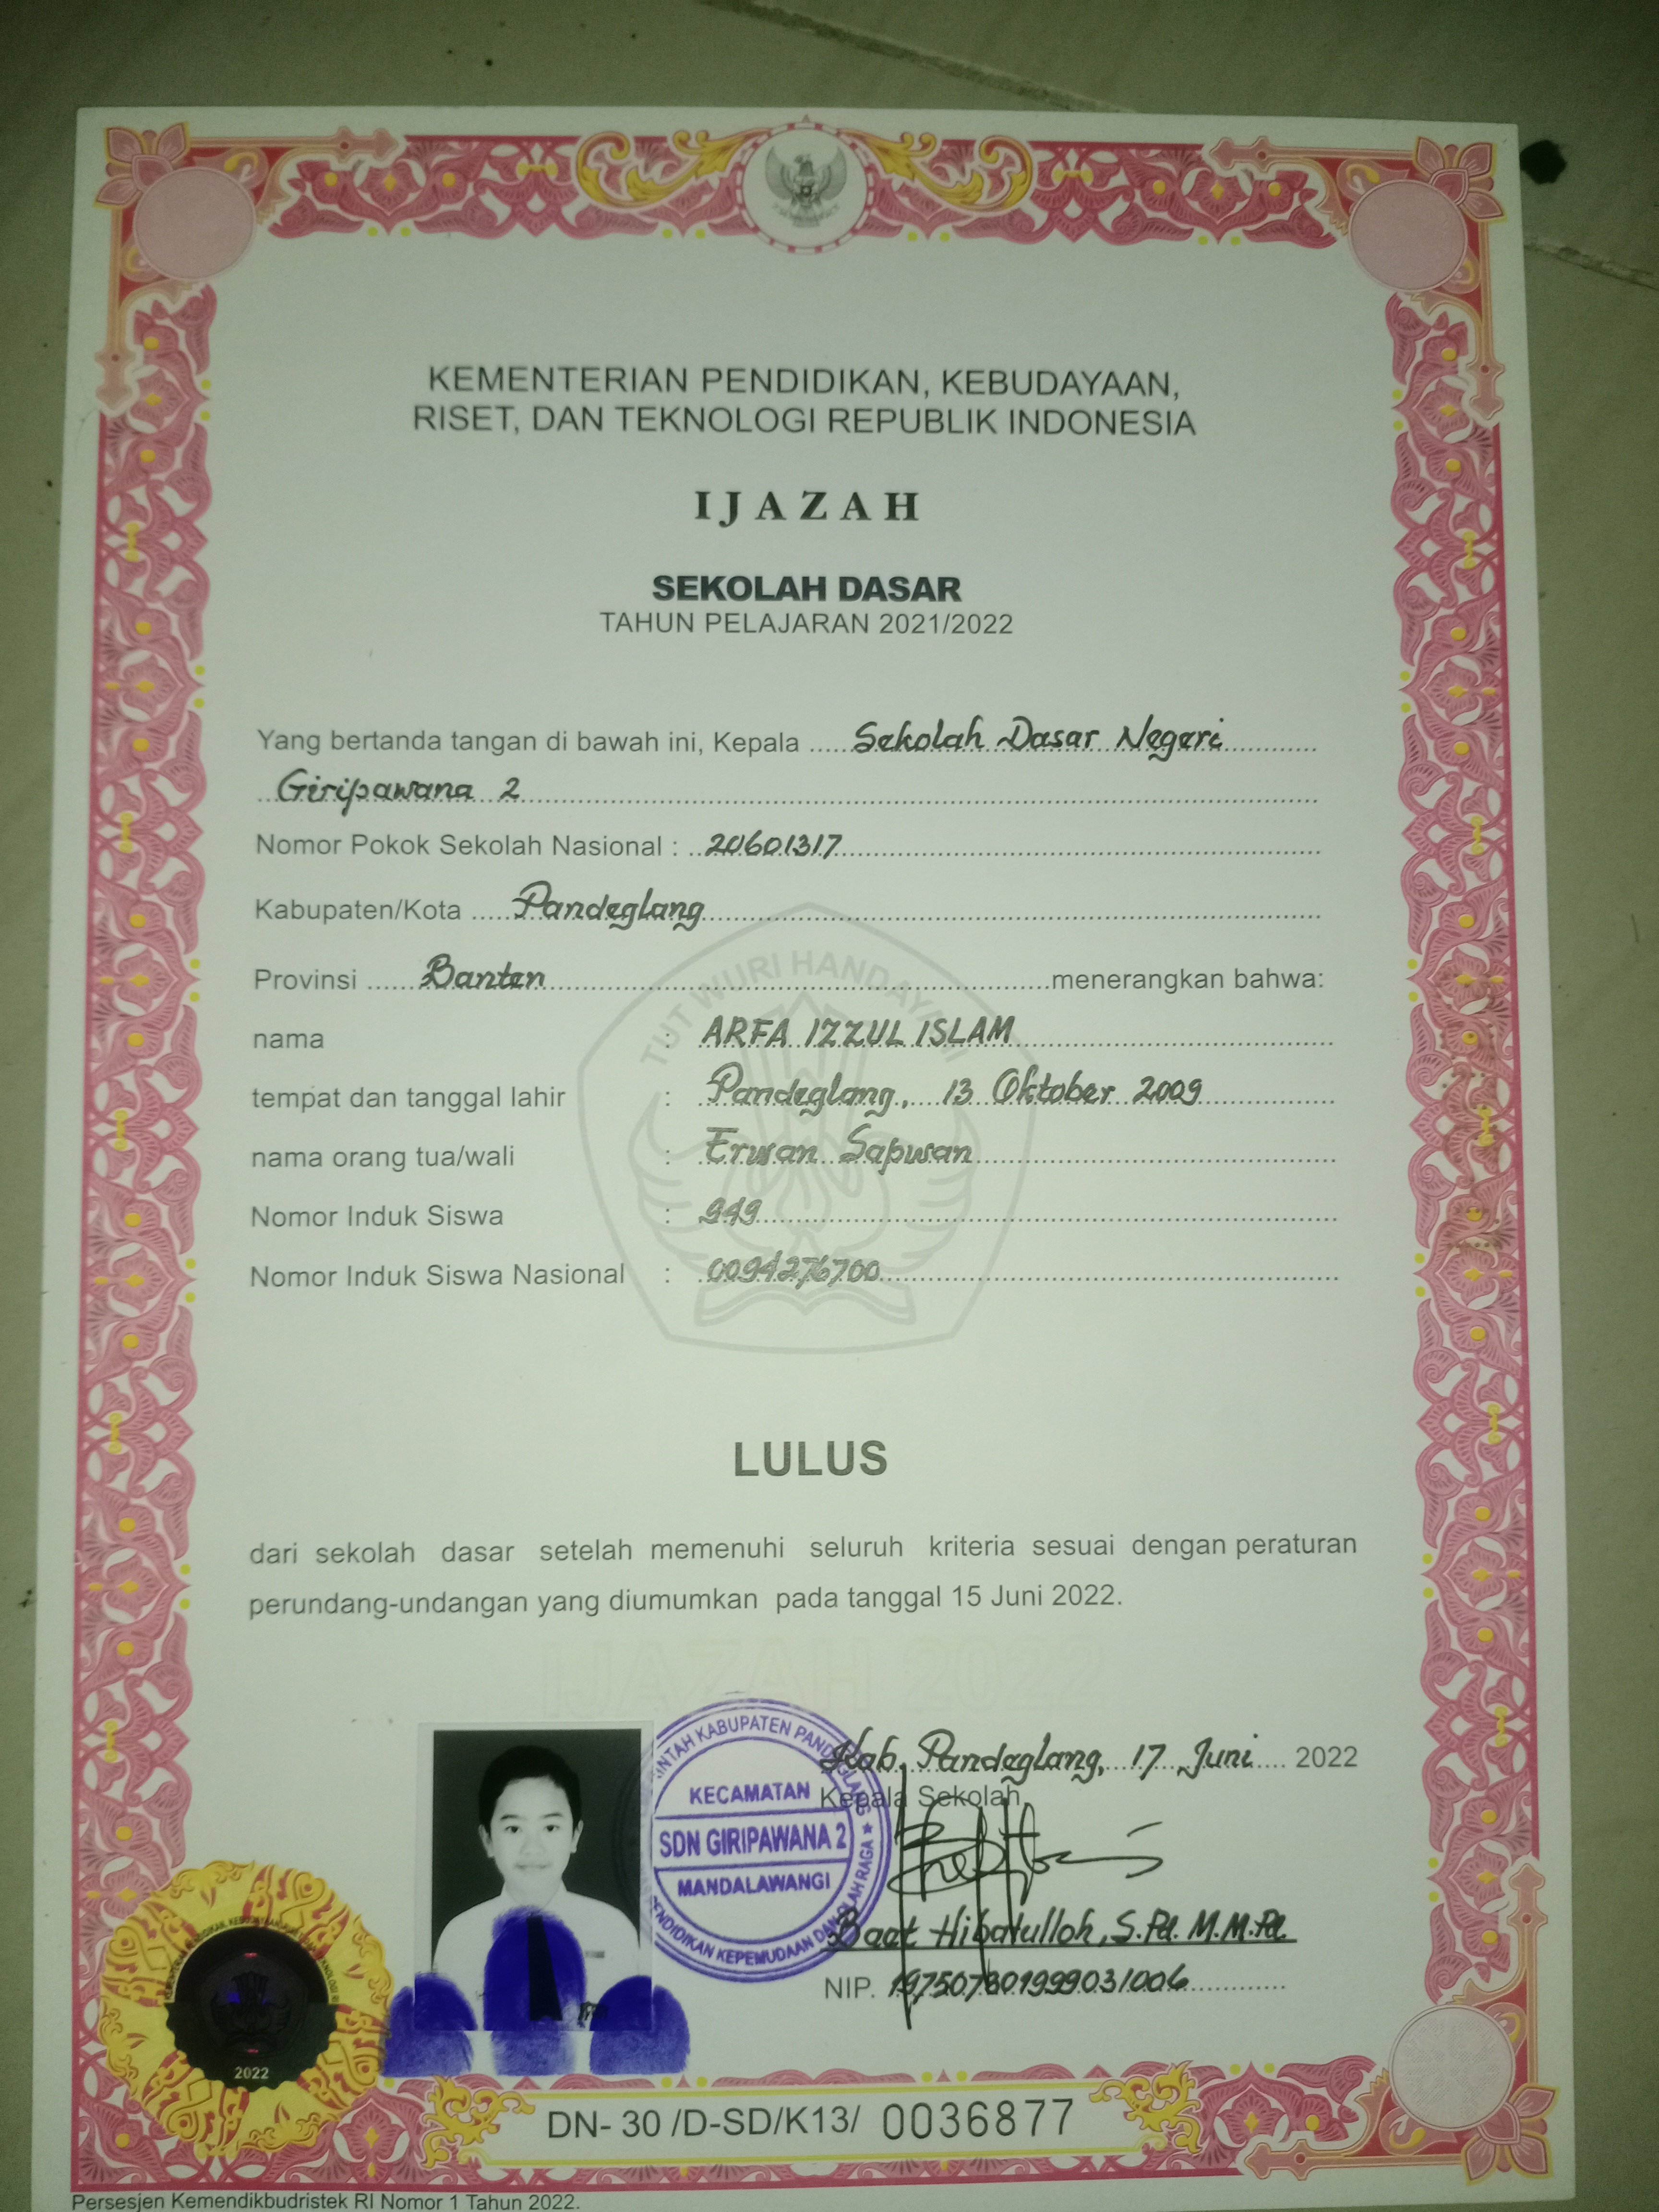 KEMENTERIAN PENDIDIKAN, KEBUDAYAAN,
RISET, DAN TEKNOLOGI REPUBLIK INDONESIA
IJAZAH
SEKOLAH DASAR
TAHUN PELAJARAN 2021/2022
Yang bertanda tangan di bawah ini, Kepala Sekolah Dasar Negeri
Giripawana 2
Nomor Pokok Sekolah Nasional : 20601317
Kabupaten/Kota Pandeglang
TUT WURI HANDAYANI
Provinsi Banten menerangkan bahwa:
nama : ARFA IZZUL ISLAM
tempat dan tanggal lahir : Pandeglang, 13 Oktober 2009
nama orang tua/wali : Erwan Sapwan
Nomor Induk Siswa : 949
Nomor Induk Siswa Nasional : 0094276700
LULUS
dari sekolah dasar setelah memenuhi seluruh kriteria sesuai dengan peraturan
perundang-undangan yang diumumkan pada tanggal 15 Juni 2022.
IJAZAH 2022
Kab. Pandeglang, 17 Juni 2022
Kepala Sekolah
KABUPATEN PANDEGLANG
KECAMATAN
SDN GIRIPAWANA 2
MANDALAWANGI
KEPEMUDAAN DAN OLAH RAGA
Baet Hibatulloh, S.Pd. M.M.Pd.
NIP. 197507301999031006
2022
DN- 30 /D-SD/K13/ 0036877
Persesjen Kemendikbudristek RI Nomor 1 Tahun 2022.